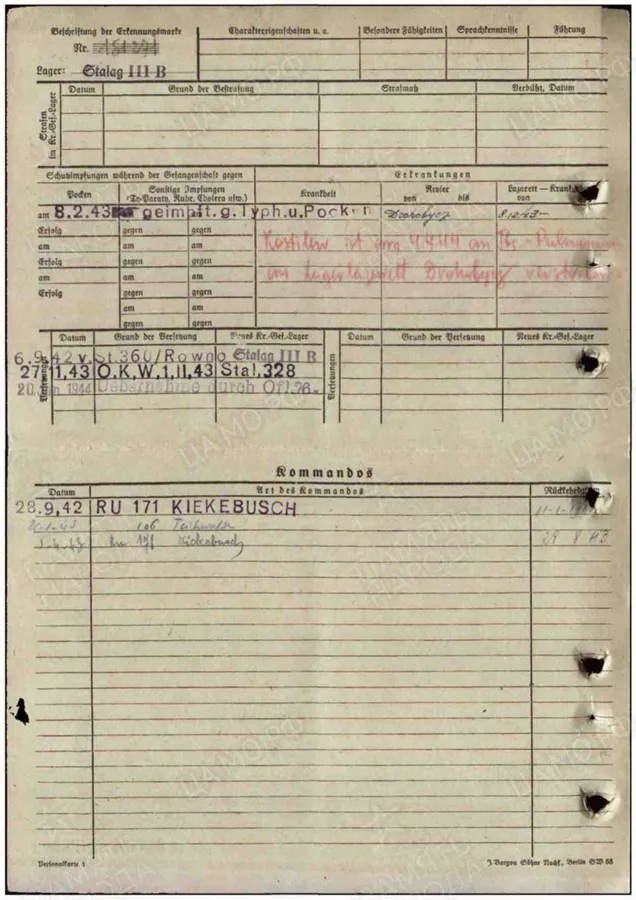 Beschriftung der Erkennungsmarke
Nr.
Lager: Stalag III B
Charaktereigenschaften u. a.
Besondere Fähigkeiten
Sprachkenntnisse
Führung
Strafen im Kr.-Gef.-Lager
Datum
Grund der Bestrafung
Strafmaß
Verbüßt, Datum
Schutzimpfungen während der Gefangenschaft gegen
Erkrankungen
Pocken
Sonstige Impfungen
(Ty-Paraty. Ruhr, Cholera usw.)
Krankheit
Revier
von bis
Lazarett — Krank
von
am 8.2.43 geimpft.g.Typh.u.Pocken
Drohobycz
8.12.43-
Erfolg gegen gegen
am am am
Erfolg gegen gegen
am am am
Erfolg gegen gegen
am am
gegen gegen
am am
gegen gegen
Kostilew ist am 4.4.44 an Tbc-Pulmonum
im Lagerlazarett Drohobycz verstorben
Versetzungen
Datum
Grund der Versetzung
Neues Kr.-Gef.-Lager
Versetzungen
Datum
Grund der Versetzung
Neues Kr.-Gef.-Lager
6.9.42 v.St.360/Rowno Stalag III B
27.11.43 O.K.W.1.11.43 Stal.328
1944 Uebernahme durch
Kommandos
Datum
Art des Kommandos
28.9.42 RU 171 KIEKEBUSCH
106
171 Kiekebusch
29 8 43
Personalkarte 1
J Bargou Söhne Nachf., Berlin SW 68
ЦАМО РФ
ПАМЯТЬ НАРОДА